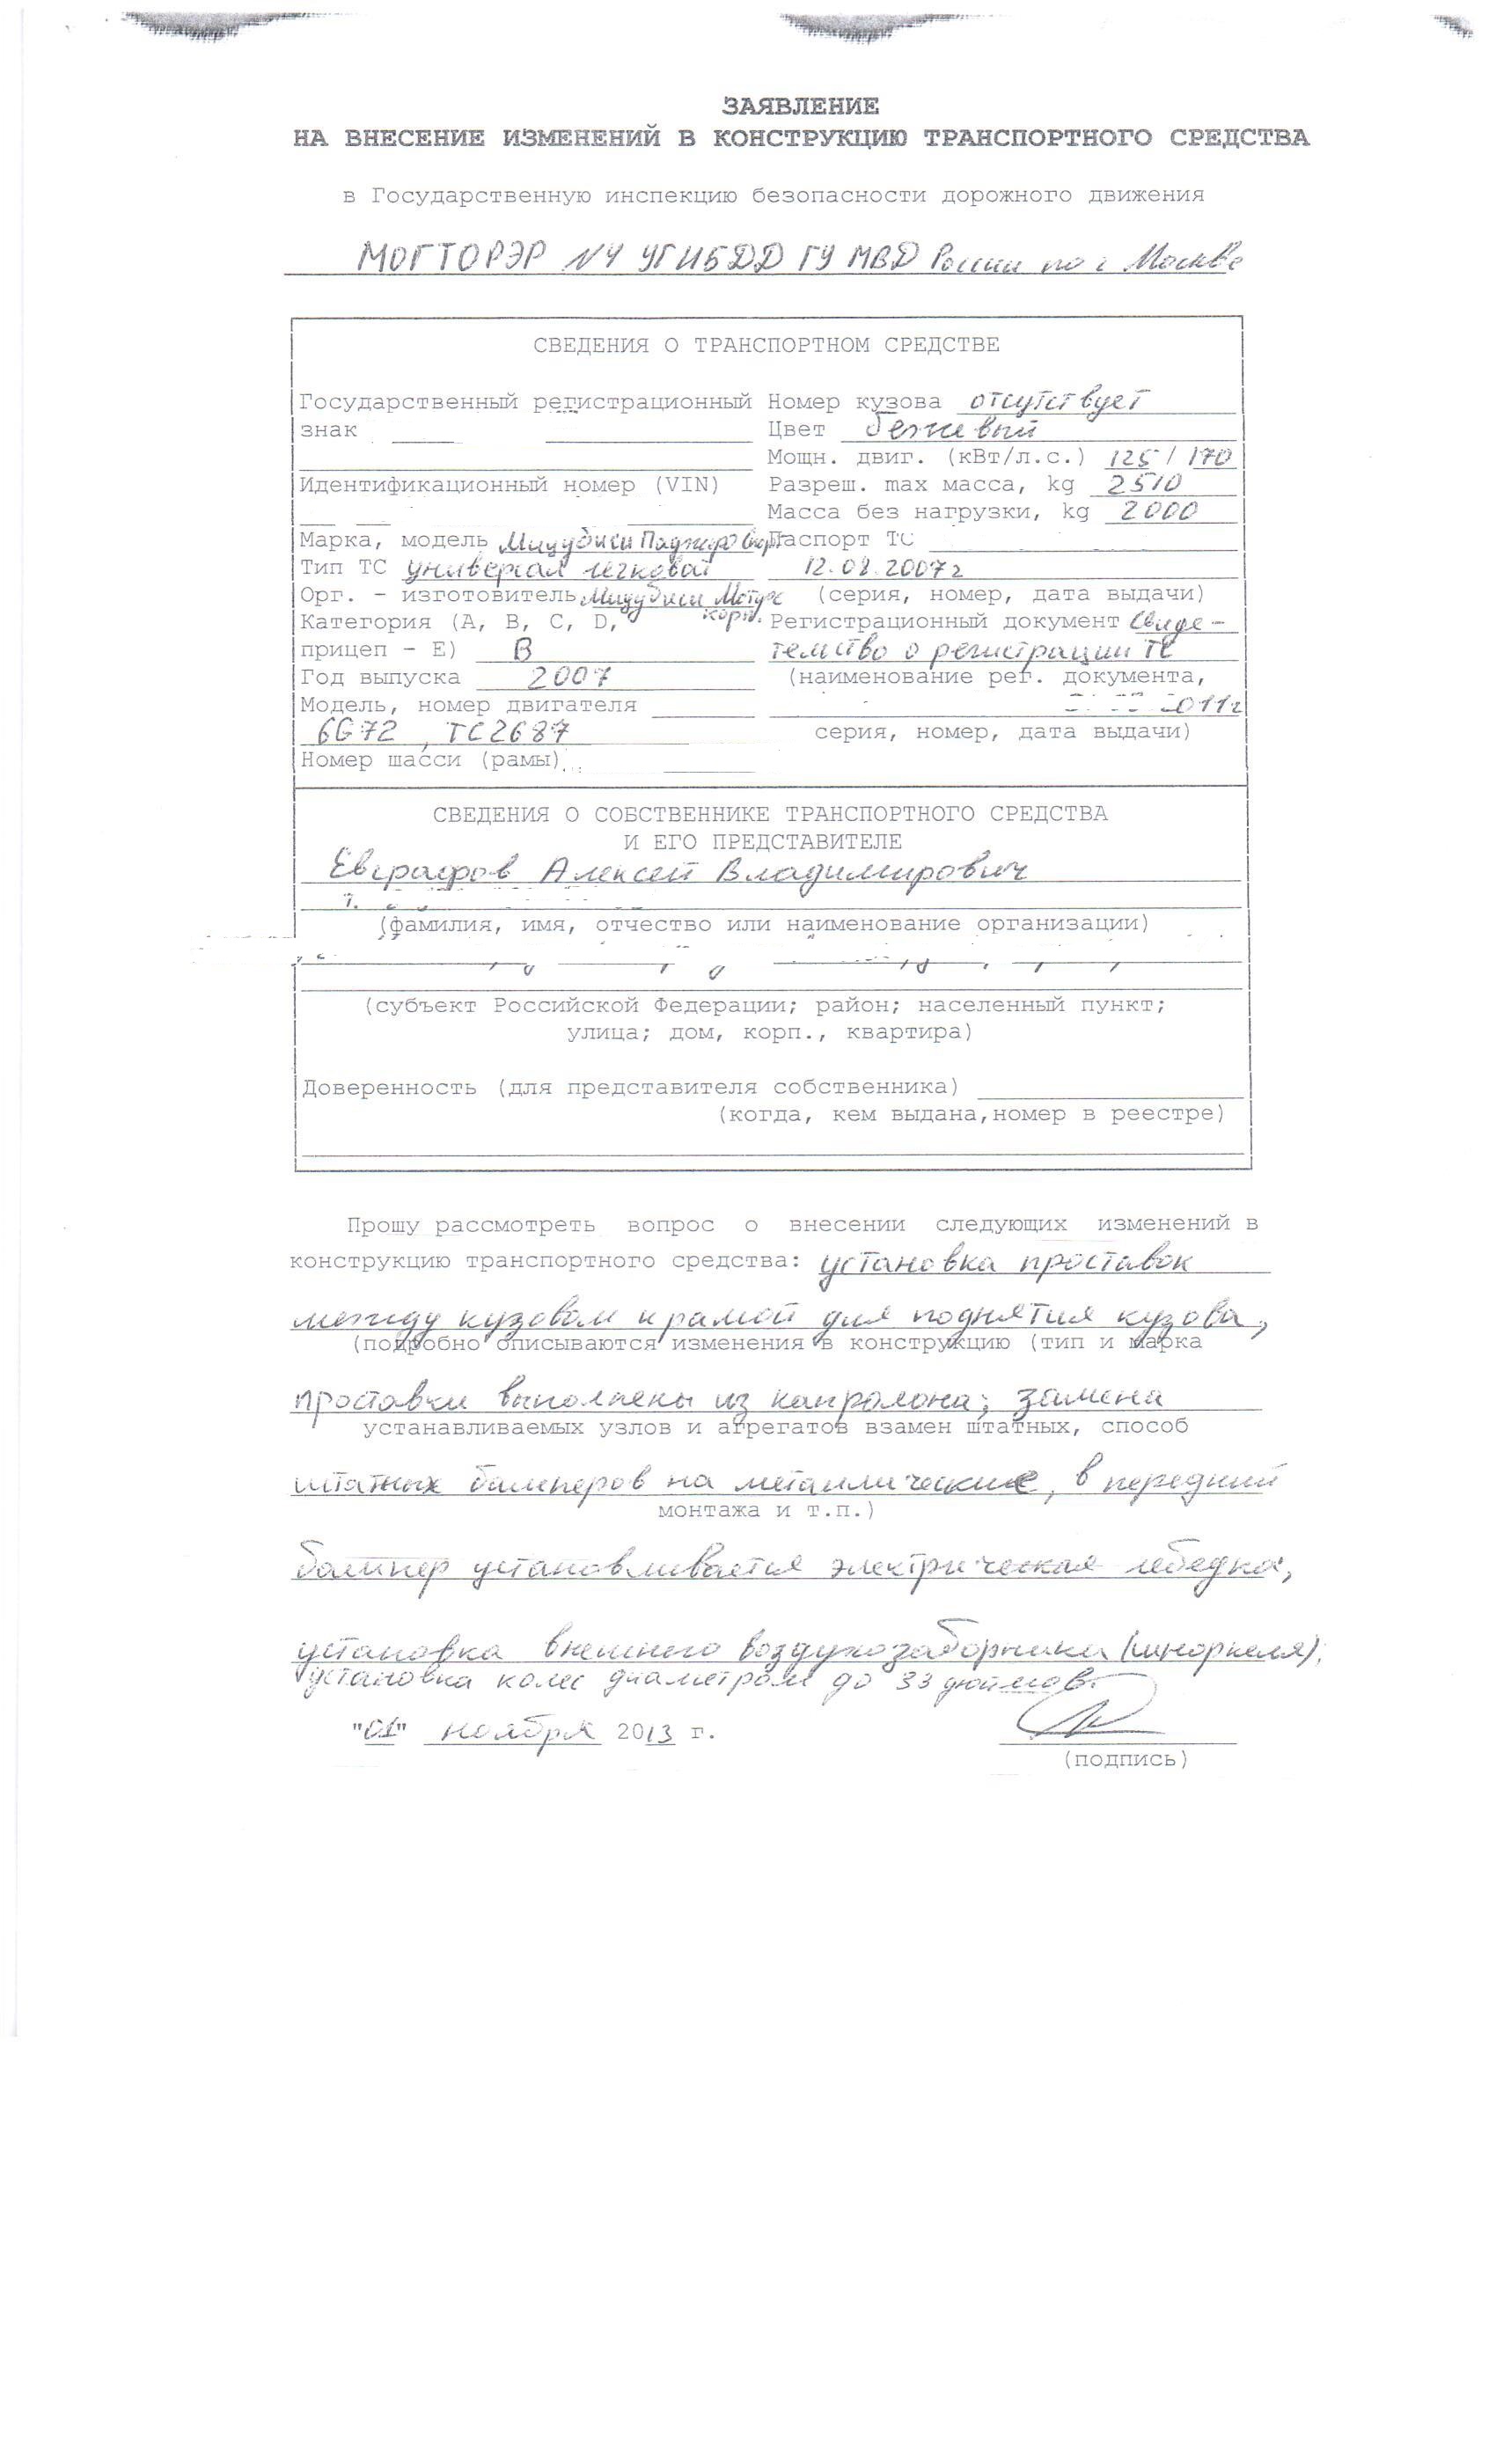 ЗАЯВЛЕНИЕ
НА ВНЕСЕНИЕ ИЗМЕНЕНИЙ В КОНСТРУКЦИЮ ТРАНСПОРТНОГО СРЕДСТВА
в Государственную инспекцию безопасности дорожного движения
МОГТОРЭР N4 УГИБДД ГУ МВД России по г Москве
СВЕДЕНИЯ О ТРАНСПОРТНОМ СРЕДСТВЕ
Государственный регистрационный Номер кузова отсутствует
знак Цвет бежевый
Мощн. двиг. (кВт/л.с.) 125 / 170
Идентификационный номер (VIN) Разреш. max масса, kg 2510
Масса без нагрузки, kg 2000
Марка, модель Мицубиси Паджеро Спорт Паспорт ТС
Тип ТС универсал легковой 12.08.2007г
Орг. - изготовитель Мицубиси Моторс (серия, номер, дата выдачи)
Категория (A, B, C, D, корп. Регистрационный документ Свиде-
прицеп - E) В тельство о регистрации ТС
Год выпуска 2007 (наименование рег. документа,
Модель, номер двигателя 2011г
6G72 , ТС2687 серия, номер, дата выдачи)
Номер шасси (рамы)
СВЕДЕНИЯ О СОБСТВЕННИКЕ ТРАНСПОРТНОГО СРЕДСТВА
И ЕГО ПРЕДСТАВИТЕЛЕ
Евграфов Алексей Владимирович
(фамилия, имя, отчество или наименование организации)
(субъект Российской Федерации; район; населенный пункт;
улица; дом, корп., квартира)
Доверенность (для представителя собственника)
(когда, кем выдана,номер в реестре)
Прошу рассмотреть вопрос о внесении следующих изменений в
конструкцию транспортного средства: установка проставок
между кузовом и рамой для поднятия кузова,
(подробно описываются изменения в конструкцию (тип и марка
проставки выполнены из капролона; замена
устанавливаемых узлов и агрегатов взамен штатных, способ
штатных бамперов на металлические, в передний
монтажа и т.п.)
бампер устанавливается электрическая лебедка,
установка внешнего воздухозаборника (шноркеля);
установка колес диаметром до 33 дюймов.
"01" ноября 2013 г.
(подпись)